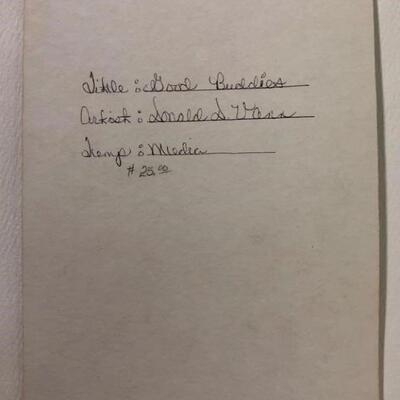 Title : Good Buddies
Artist : Donald S. Vann
Temp : Media
$ 25.00